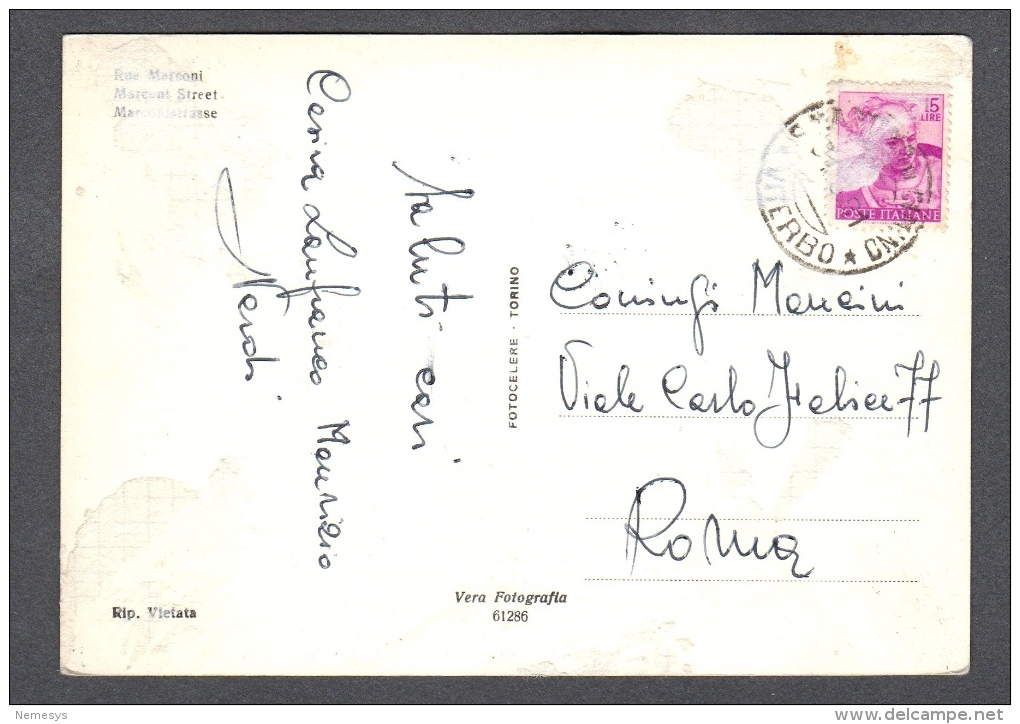 Rue Marconi
Marconi Street
Marconistrasse
Saluti cari
Lanfranco Maurizio
15
LIRE
POSTE ITALIANE
ERBO
FOTOCELERE - TORINO
Coniugi Mancini
Viale Carlo Felice 77
Roma
Rip. Vietata
Vera Fotografia
61286
Nemesys
delcampe.net